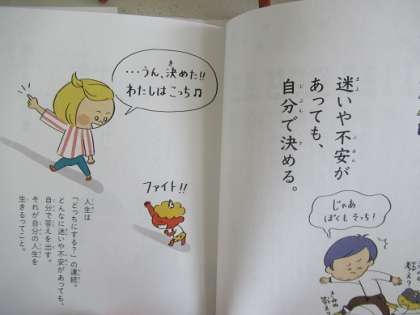 迷いや不安が
あっても、
自分で決める。
じゃあ
ぼくもそっち!
…うん、決めた!!
わたしはこっち♫
ファイト!!
人生は
「どっちにする?」の連続。
どんなに迷いや不安があっても、
自分で答えを出す。
それが自分の人生を
生きるってこと。